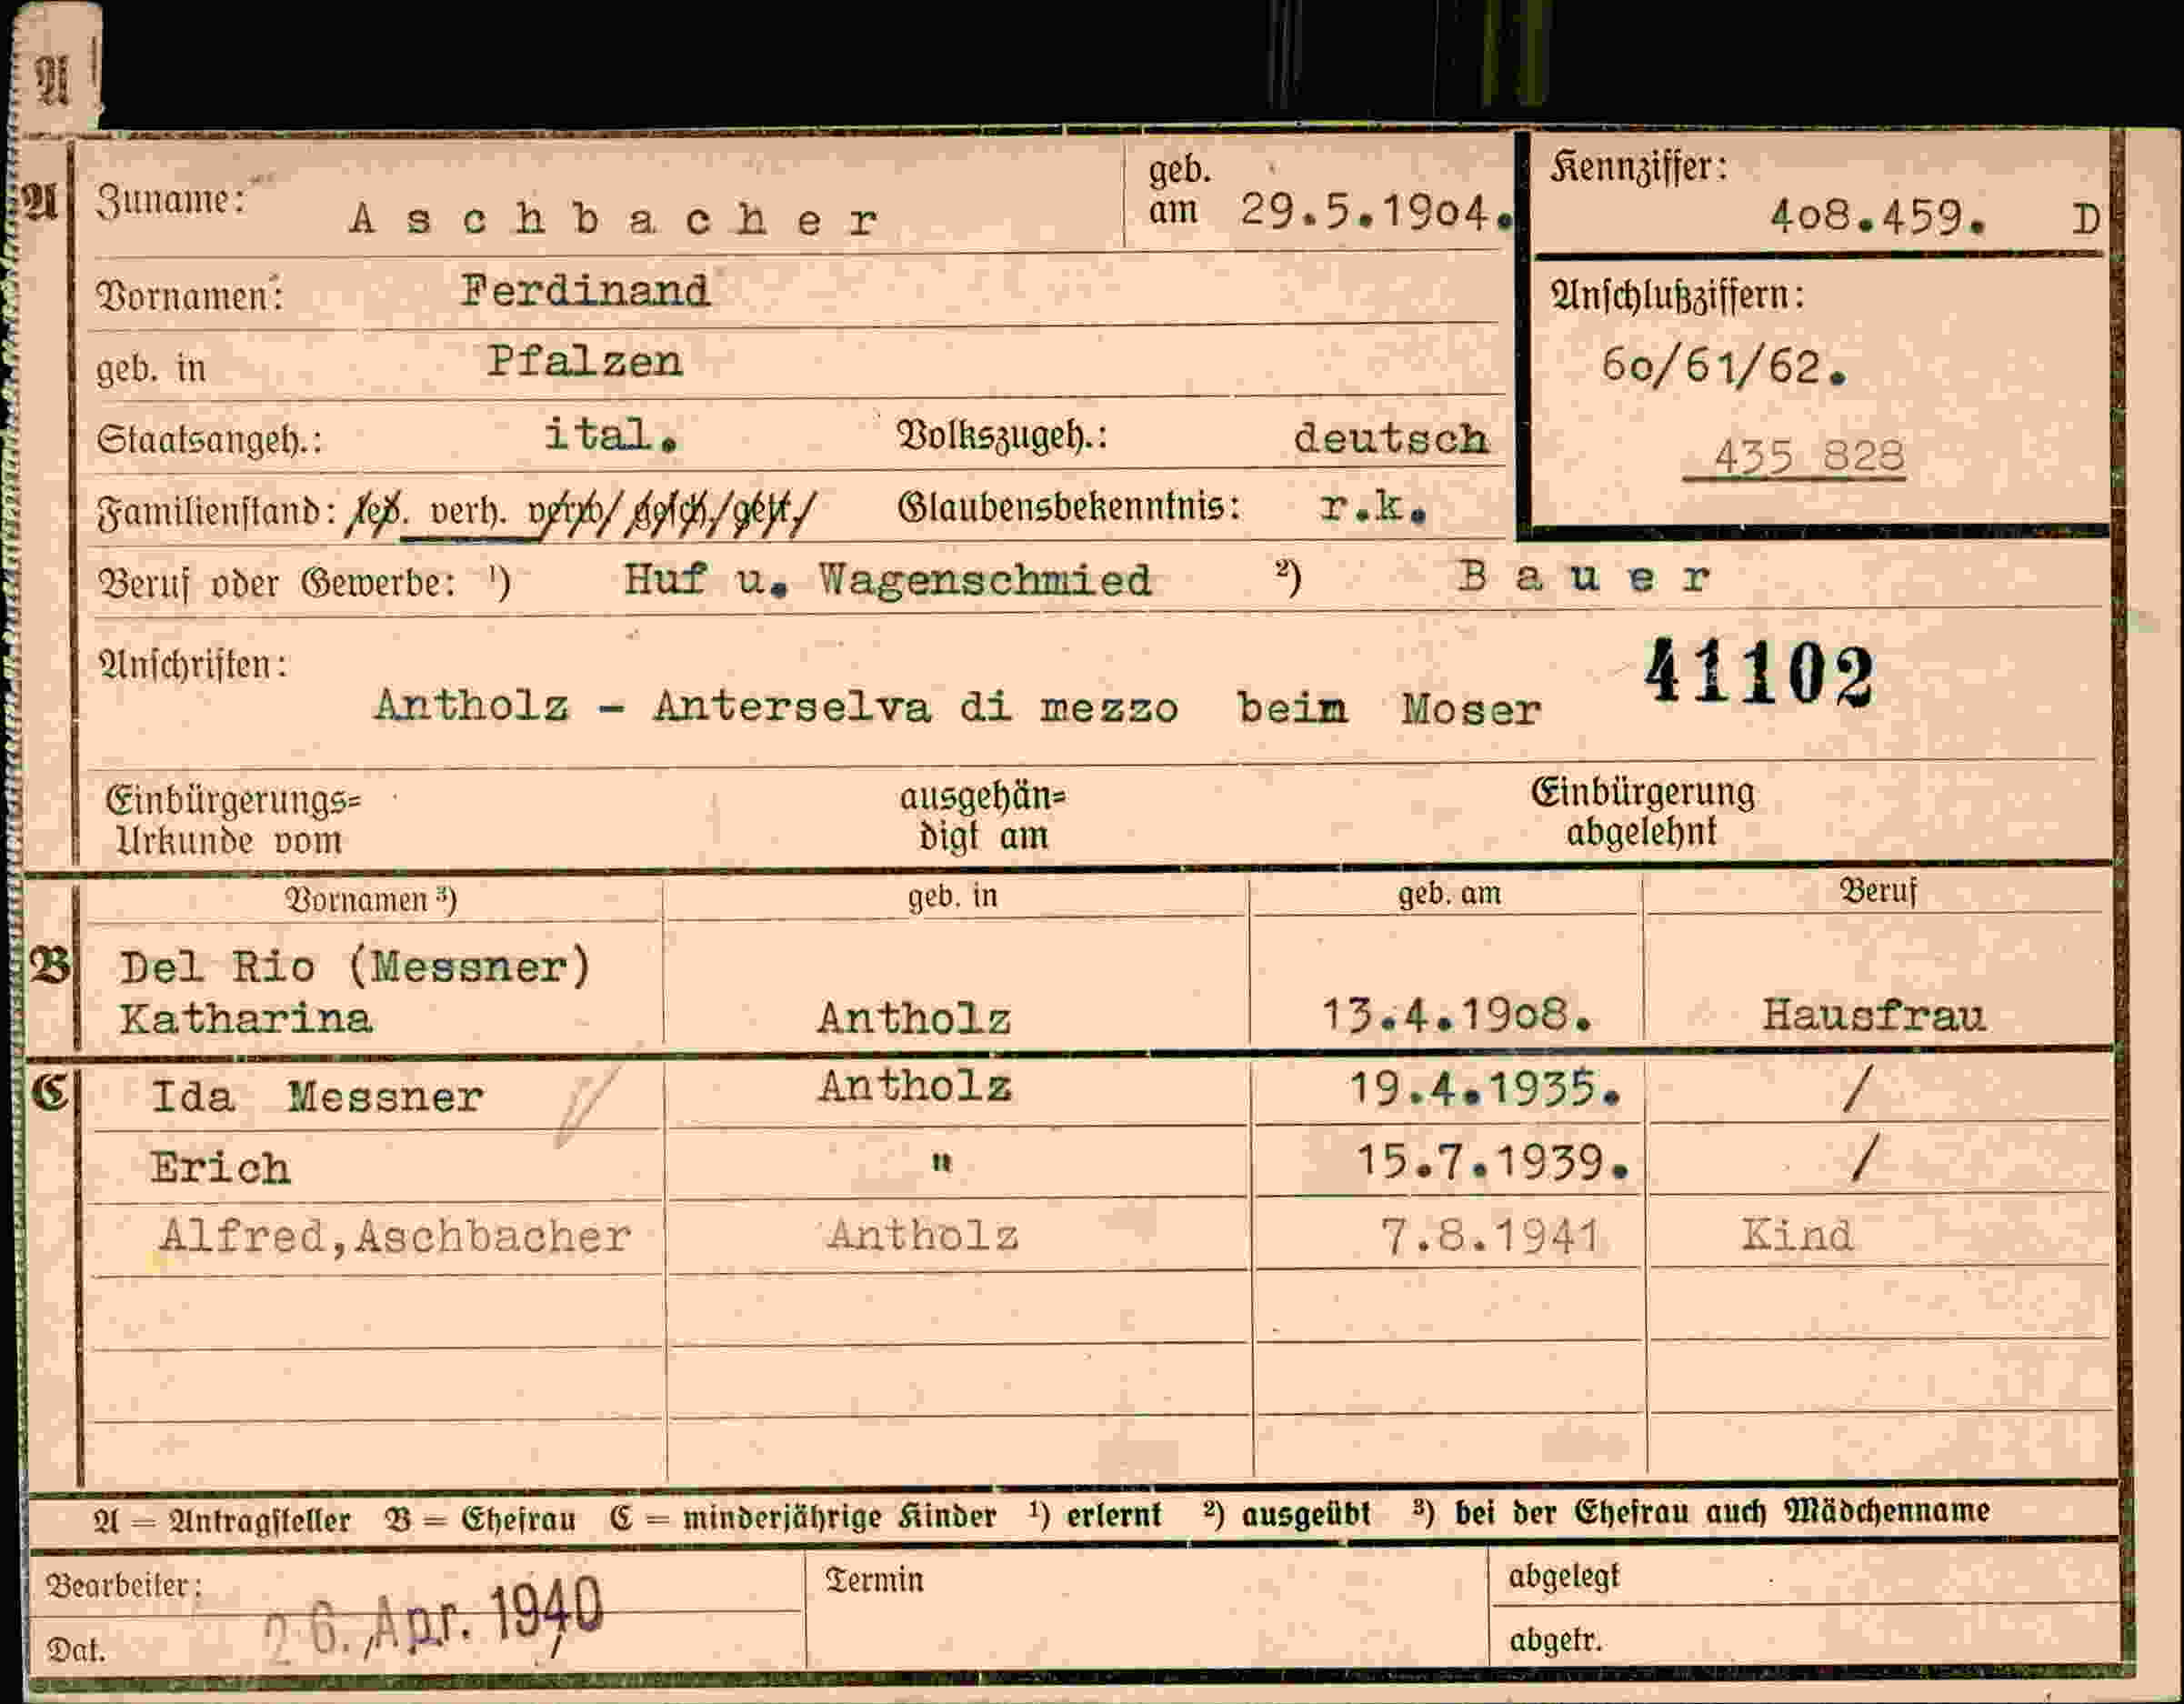 A
A Zuname: Aschbacher geb. am 29.5.1904. Kennziffer: 408.459. D
Vornamen: Ferdinand Anschlußziffern:
geb. in Pfalzen 60/61/62.
Staatsangeh.: ital. Volkszugeh.: deutsch 435 828
Familienstand: led. verh. verw. gesch. getr. Glaubensbekenntnis: r.k.
Beruf oder Gewerbe: ¹) Huf u. Wagenschmied ²) Bauer
Anschriften: 41102
Antholz - Anterselva di mezzo beim Moser
Einbürgerungs= ausgehän= Einbürgerung
Urkunde vom digt am abgelehnt
Vornamen ³) geb. in geb. am Beruf
B Del Rio (Messner)
Katharina Antholz 13.4.1908. Hausfrau
C Ida Messner Antholz 19.4.1935. /
Erich " 15.7.1939. /
Alfred, Aschbacher Antholz 7.8.1941 Kind
A = Antragsteller B = Ehefrau C = minderjährige Kinder ¹) erlernt ²) ausgeübt ³) bei der Ehefrau auch Mädchenname
Bearbeiter: Termin abgelegt
Dat. 26. Apr. 1940 abgetr.